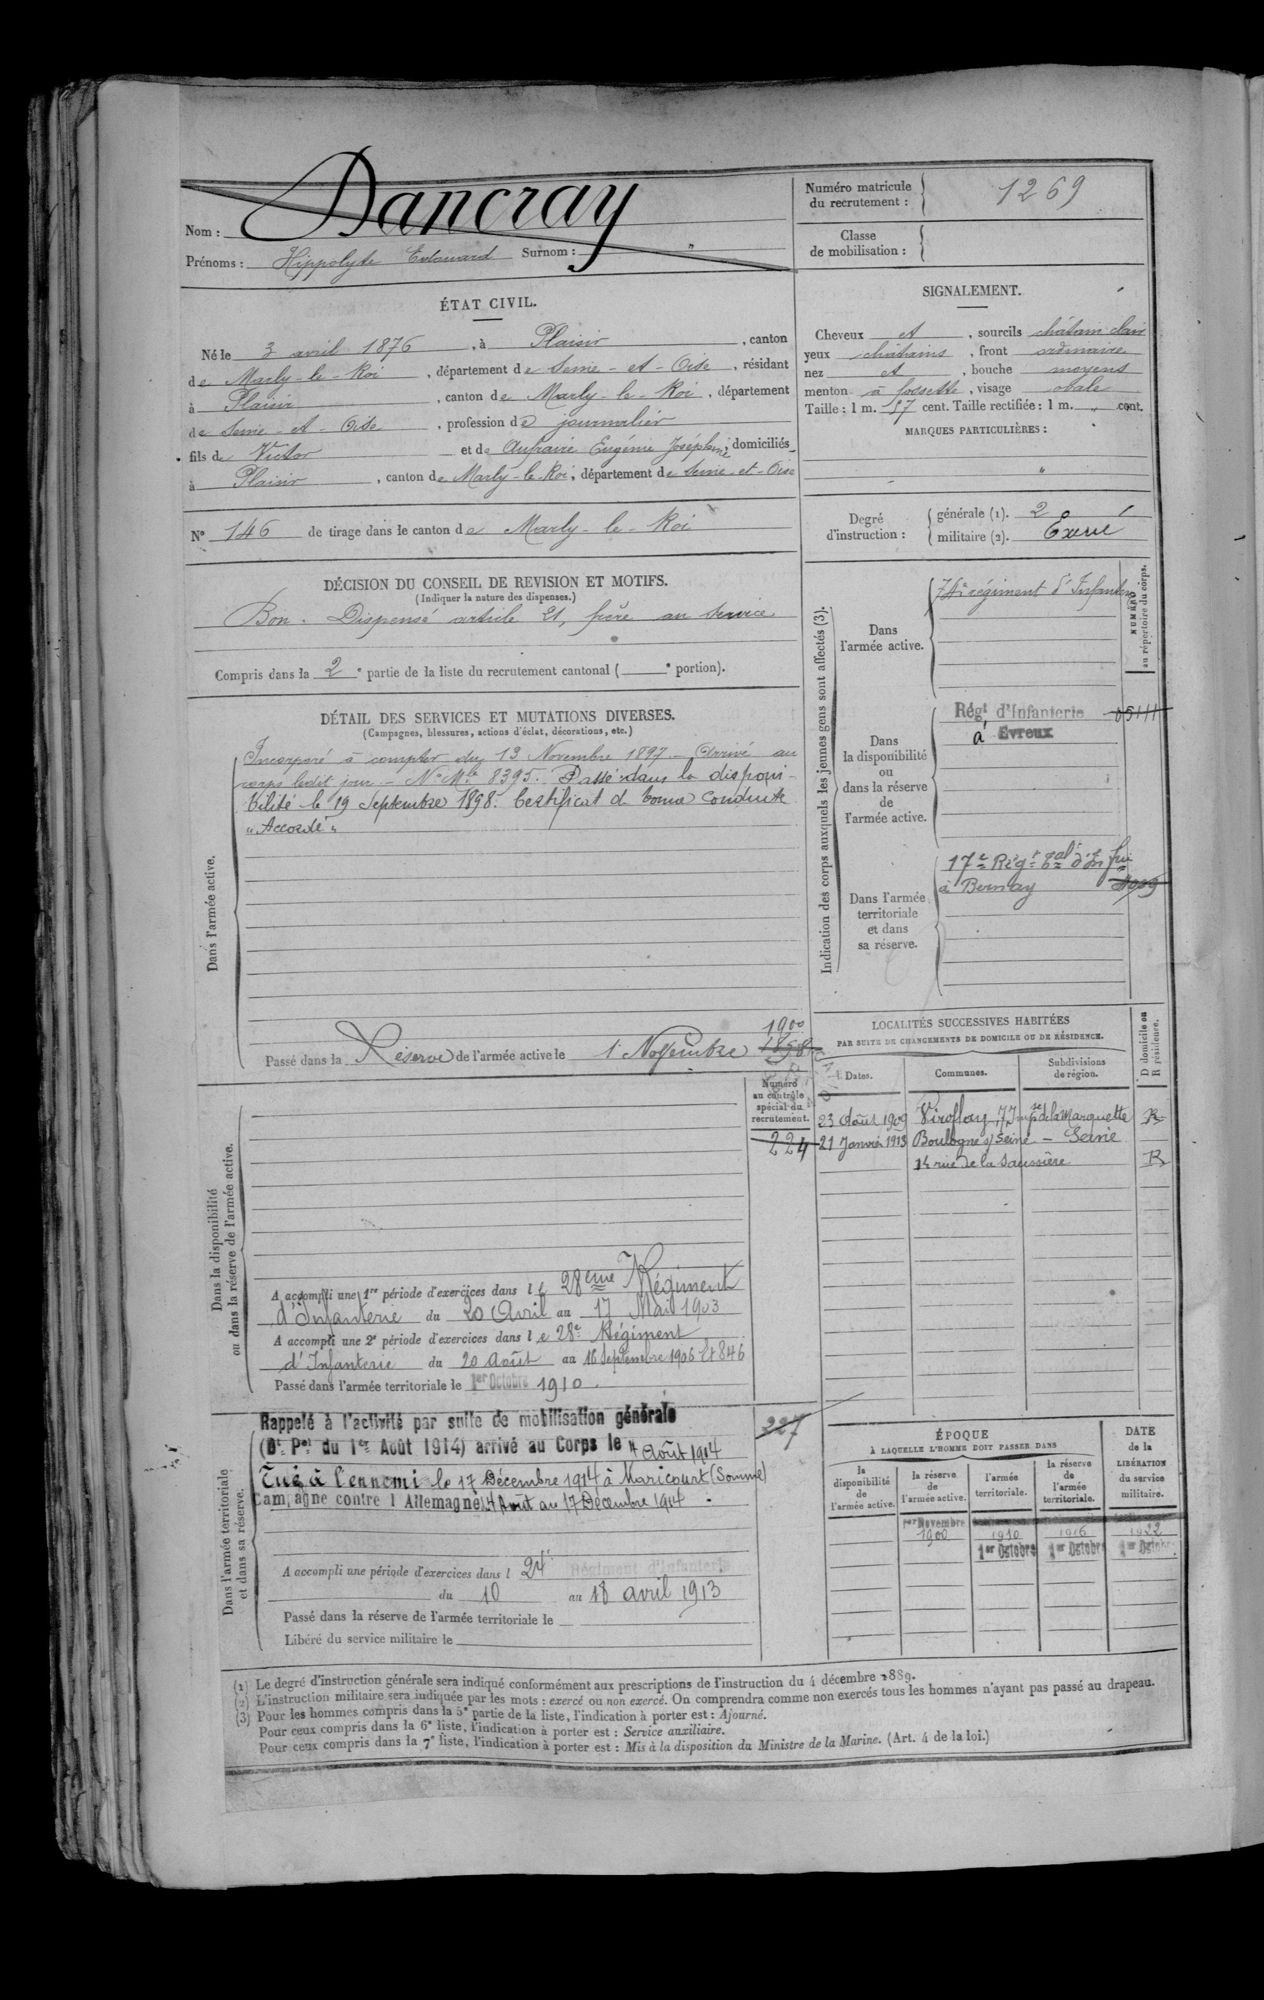 Nom : Dancray
Prénoms : Hippolyte Edouard Surnom : "
Numéro matricule du recrutement : 1269
Classe de mobilisation :
ÉTAT CIVIL.
Né le 3 avril 1876, à Plaisir, canton
de Marly-le-Roi, département de Seine-et-Oise, résidant
à Plaisir, canton de Marly-le-Roi, département
de Seine-et-Oise, profession de journalier
fils de Victor et de Aufraire Eugénie Joséphine, domiciliés
à Plaisir, canton de Marly-le-Roi, département de Seine-et-Oise
N° 146 de tirage dans le canton de Marly-le-Roi
SIGNALEMENT.
Cheveux et, sourcils châtain clair
yeux châtains, front ordinaire
nez et, bouche moyens
menton à fossette, visage ovale
Taille : 1 m. 57 cent. Taille rectifiée : 1 m. " cent.
MARQUES PARTICULIÈRES :
"
Degré d'instruction :
générale (1). 2
militaire (2). Exercé
DÉCISION DU CONSEIL DE REVISION ET MOTIFS.
(Indiquer la nature des dispenses.)
Bon. Dispensé article 21, frère au service
Compris dans la 2e partie de la liste du recrutement cantonal ( e portion).
DÉTAIL DES SERVICES ET MUTATIONS DIVERSES.
(Campagnes, blessures, actions d'éclat, décorations, etc.)
Dans l'armée active.
Incorporé à compter du 13 Novembre 1897. Arrivé au
corps ledit jour. - N° Mle 8395. Passé dans la disponi-
bilité le 19 Septembre 1898. Certificat de bonne conduite
"Accordé"
Passé dans la Réserve de l'armée active le 1 Novembre 1898
1900
Indication des corps auxquels les jeunes gens sont affectés (3).
NUMÉRO au répertoire du corps.
Dans l'armée active.
74e régiment d'Infanterie
Dans la disponibilité ou dans la réserve de l'armée active.
Régt d'Infanterie 05111
à Evreux
Dans l'armée territoriale et dans sa réserve.
17e Régt tal d'Infrie
à Bernay
LOCALITÉS SUCCESSIVES HABITÉES
PAR SUITE DE CHANGEMENTS DE DOMICILE OU DE RÉSIDENCE.
D domicile ou R résidence.
Dates. Communes. Subdivisions de région.
23 Août 1909 Viroflay, 7 Impse de la Marquette R
21 Janvier 1913 Boulogne s/ Seine - Seine
14 rue de la Saussière R
Dans la disponibilité ou dans la réserve de l'armée active.
Numéro au contrôle spécial du recrutement.
224
A accompli une 1re période d'exercices dans le 28ème Régiment
d'Infanterie du 20 Avril au 17 Mai 1903
A accompli une 2e période d'exercices dans le 28e Régiment
d'Infanterie du 20 Août au 16 Septembre 1906 Lt 846
Passé dans l'armée territoriale le 1er Octobre 1910.
Dans l'armée territoriale et dans sa réserve.
Rappelé à l'activité par suite de mobilisation générale 227
(Dt Pel du 1er Août 1914) arrivé au Corps le 4 Août 1914
Tué à l'ennemi le 17 Décembre 1914 à Maricourt (Somme)
Campagne contre l'Allemagne 4 Aout au 17 Décembre 1914.
A accompli une période d'exercices dans l 24e Régiment d'Infanterie
du 10 au 18 avril 1913
Passé dans la réserve de l'armée territoriale le
Libéré du service militaire le
ÉPOQUE
À LAQUELLE L'HOMME DOIT PASSER DANS
DATE de la LIBÉRATION du service militaire.
la disponibilité de l'armée active.
la réserve de l'armée active.
l'armée territoriale.
la réserve de l'armée territoriale.
1er Novembre
1900 1910 1916 1922
1er Octobre 1er Octobre 1er Octobre
(1) Le degré d'instruction générale sera indiqué conformément aux prescriptions de l'instruction du 4 décembre 1889.
(2) L'instruction militaire sera indiquée par les mots : exercé ou non exercé. On comprendra comme non exercés tous les hommes n'ayant pas passé au drapeau.
(3) Pour les hommes compris dans la 5e partie de la liste, l'indication à porter est : Ajourné.
Pour ceux compris dans la 6e liste, l'indication à porter est : Service auxiliaire.
Pour ceux compris dans la 7e liste, l'indication à porter est : Mis à la disposition du Ministre de la Marine. (Art. 4 de la loi.)